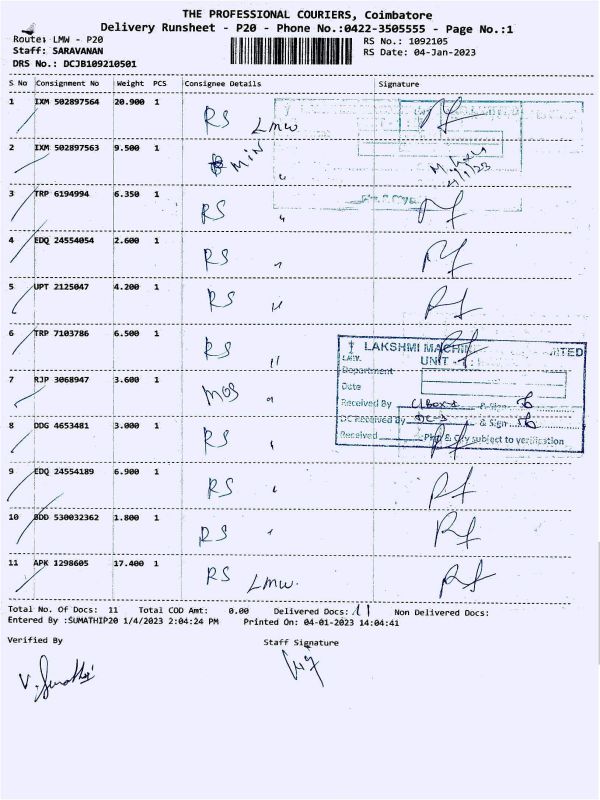 THE PROFESSIONAL COURIERS, Coimbatore
Delivery Runsheet - P20 - Phone No.:0422-3505555 - Page No.:1
Route: LMW - P20
RS No.: 1092105
Staff: SARAVANAN
RS Date: 04-Jan-2023
DRS No.: DCJB109210501
S No Consignment No Weight PCS Consignee Details Signature
1 IXM 502897564 20.900 1 RS LMW
2 IXM 502897563 9.500 1 MIN "
3 TRP 6194994 6.350 1 RS "
4 EDQ 24554054 2.600 1 RS "
5 UPT 2125047 4.200 1 RS "
6 TRP 7103786 6.500 1 RS "
LAKSHMI MACHIN ITED
LMW. UNIT -
Department
7 RJP 3068947 3.600 1 MOS "
Date
Received By & Sign
8 DDG 4653481 3.000 1 RS "
DC Received By DC-1 & Sign
Received Pkg & Qty subject to verification
9 EDQ 24554189 6.900 1 RS "
10 BDD 530032362 1.800 1 RS "
11 APK 1298605 17.400 1 RS LMW.
Total No. Of Docs: 11 Total COD Amt: 0.00 Delivered Docs: 11 Non Delivered Docs:
Entered By :SUMATHIP20 1/4/2023 2:04:24 PM Printed On: 04-01-2023 14:04:41
Verified By Staff Signature
V. Sumathi